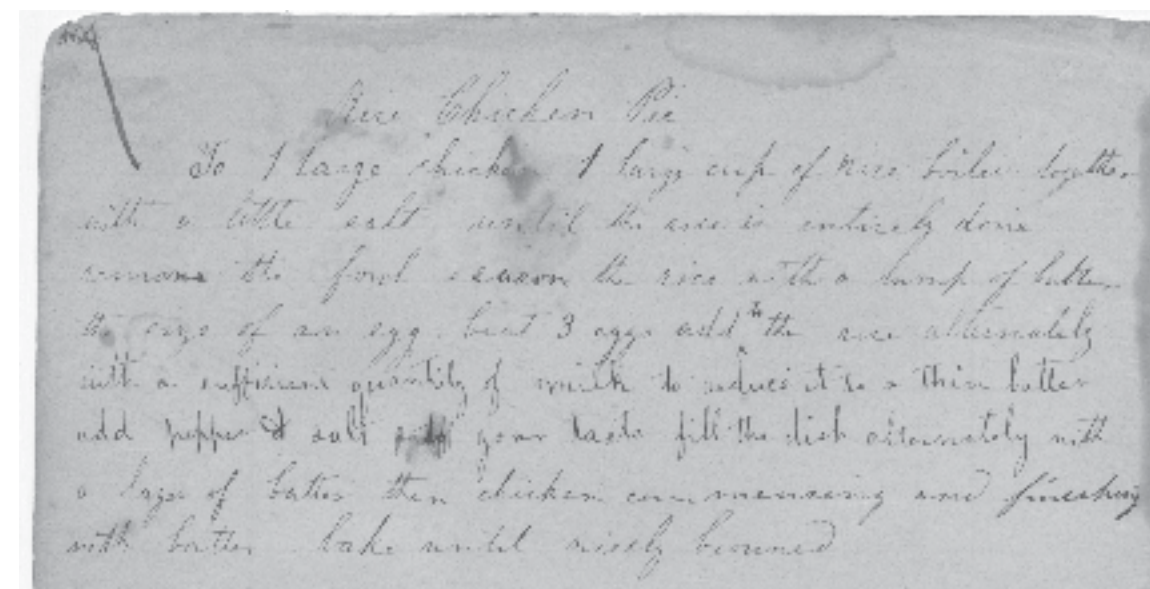 Rice Chicken Pie
To 1 large chicken 1 large cup of rice boiled together
with a little salt until the rice is entirely done
remove the fowl season the rice with a lump of butter
the size of an egg beat 3 eggs add to the rice alternately
with a sufficient quantity of milk to reduce it to a thin batter
add pepper & salt your taste fill the dish alternately with
a layer of batter then chicken commencing and finishing
with batter bake until nicely browned